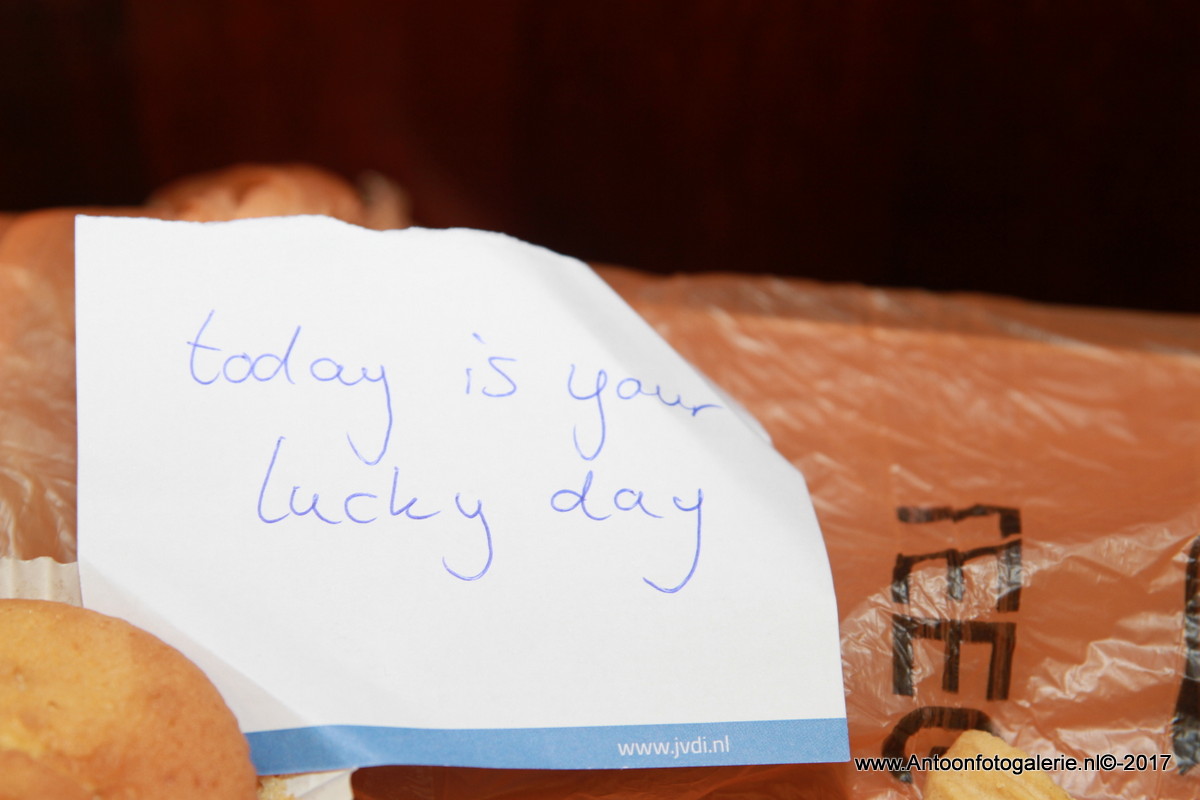 today is your
lucky day
www.jvdi.nl
www.Antoonfotogalerie.nl©-2017